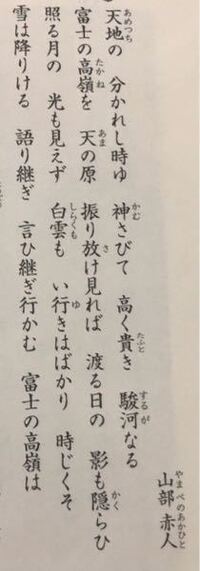 山部赤人
天地の 分かれし時ゆ 神さびて 高く貴き 駿河なる
富士の高嶺を 天の原 振り放け見れば 渡る日の 影も隠らひ
照る月の 光も見えず 白雲も い行きはばかり 時じくそ
雪は降りける 語り継ぎ 言ひ継ぎ行かむ 富士の高嶺は